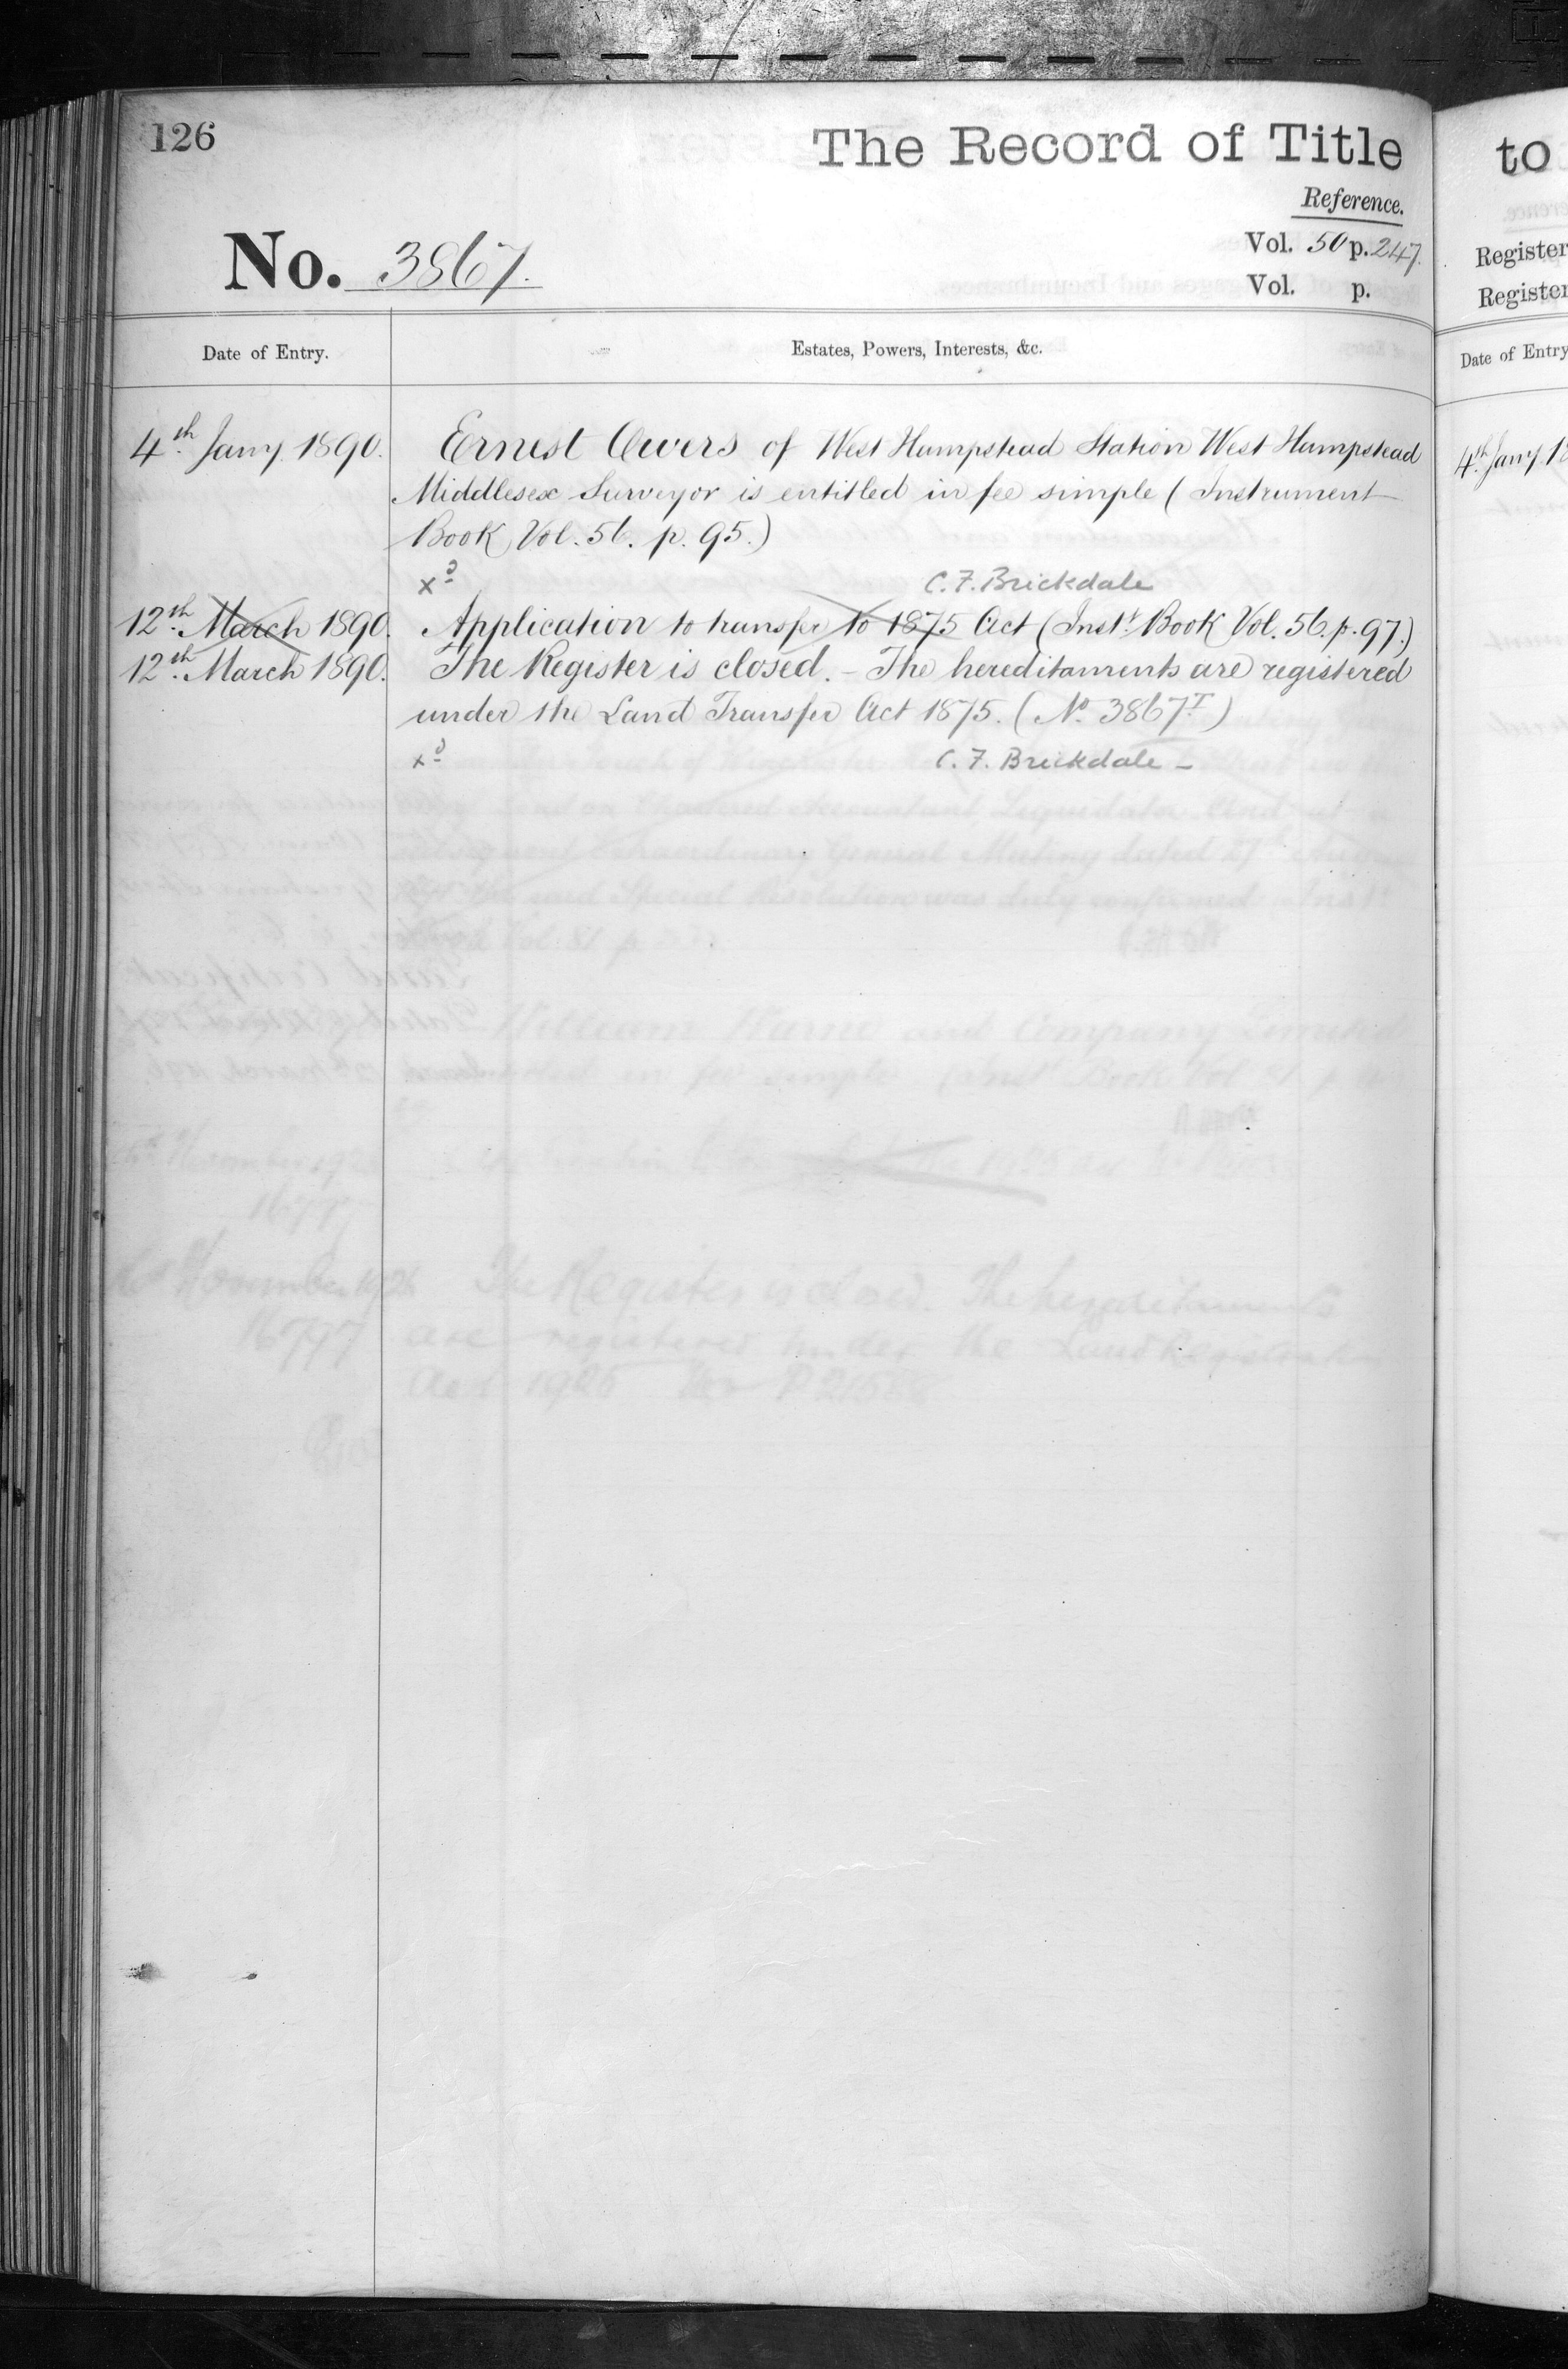 126
The Record of Title
Reference.
No. 3867.
Vol. 50 p. 247.
Vol. p.
Date of Entry.
Estates, Powers, Interests, &c.
4th Jany 1890. Ernest Owers of West Hampstead Station West Hampstead
Middlesex Surveyor is entitled in fee simple (Instrument
Book Vol. 56. p. 95.)
xd C. F. Brickdale
12th March 1890. Application to transfer to 1875 Act (Inst. Book Vol. 56. p. 97.)
12th March 1890. The Register is closed. – The hereditaments are registered
under the Land Transfer Act 1875. (No. 3867 I)
xd C. F. Brickdale –
to
Register
Register
Date of Entry
4th Jany 18